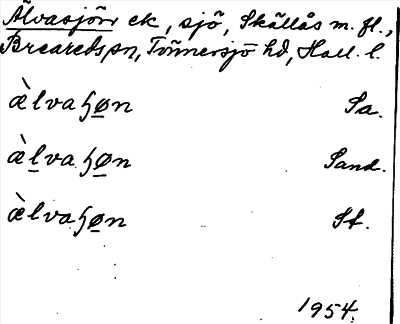 Älvasjön ek, sjö, Skällås m. fl.,
Breareds sn, Tönnersjö hd, Hall. l.
æ̀lvaɧøn Sa.
æ̀lvaɧøn Sand.
æ̀lvaɧøn St.
1954.